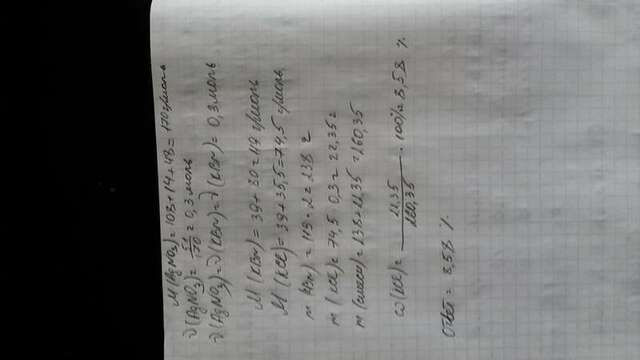 M(AgNO₃) = 108+14+48 = 170 г/моль
ν(AgNO₃) = 51/170 = 0,3 моль
ν(AgNO₃) = ν(KBr) = 0,3 моль
M(KBr) = 39+80 = 119 г/моль
M(KCl) = 39+35,5 = 74,5 г/моль
m(KBr) = 119·2 = 238 г
m(KCl) = 74,5·0,3 = 22,35 г
m(смеси) = 238+22,35 = 260,35
ω(KCl) = 22,35/260,35 · 100% = 8,58 %
Ответ = 8,58 %